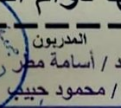 المدربون
د / أسامة مطر
/ محمود حبيب